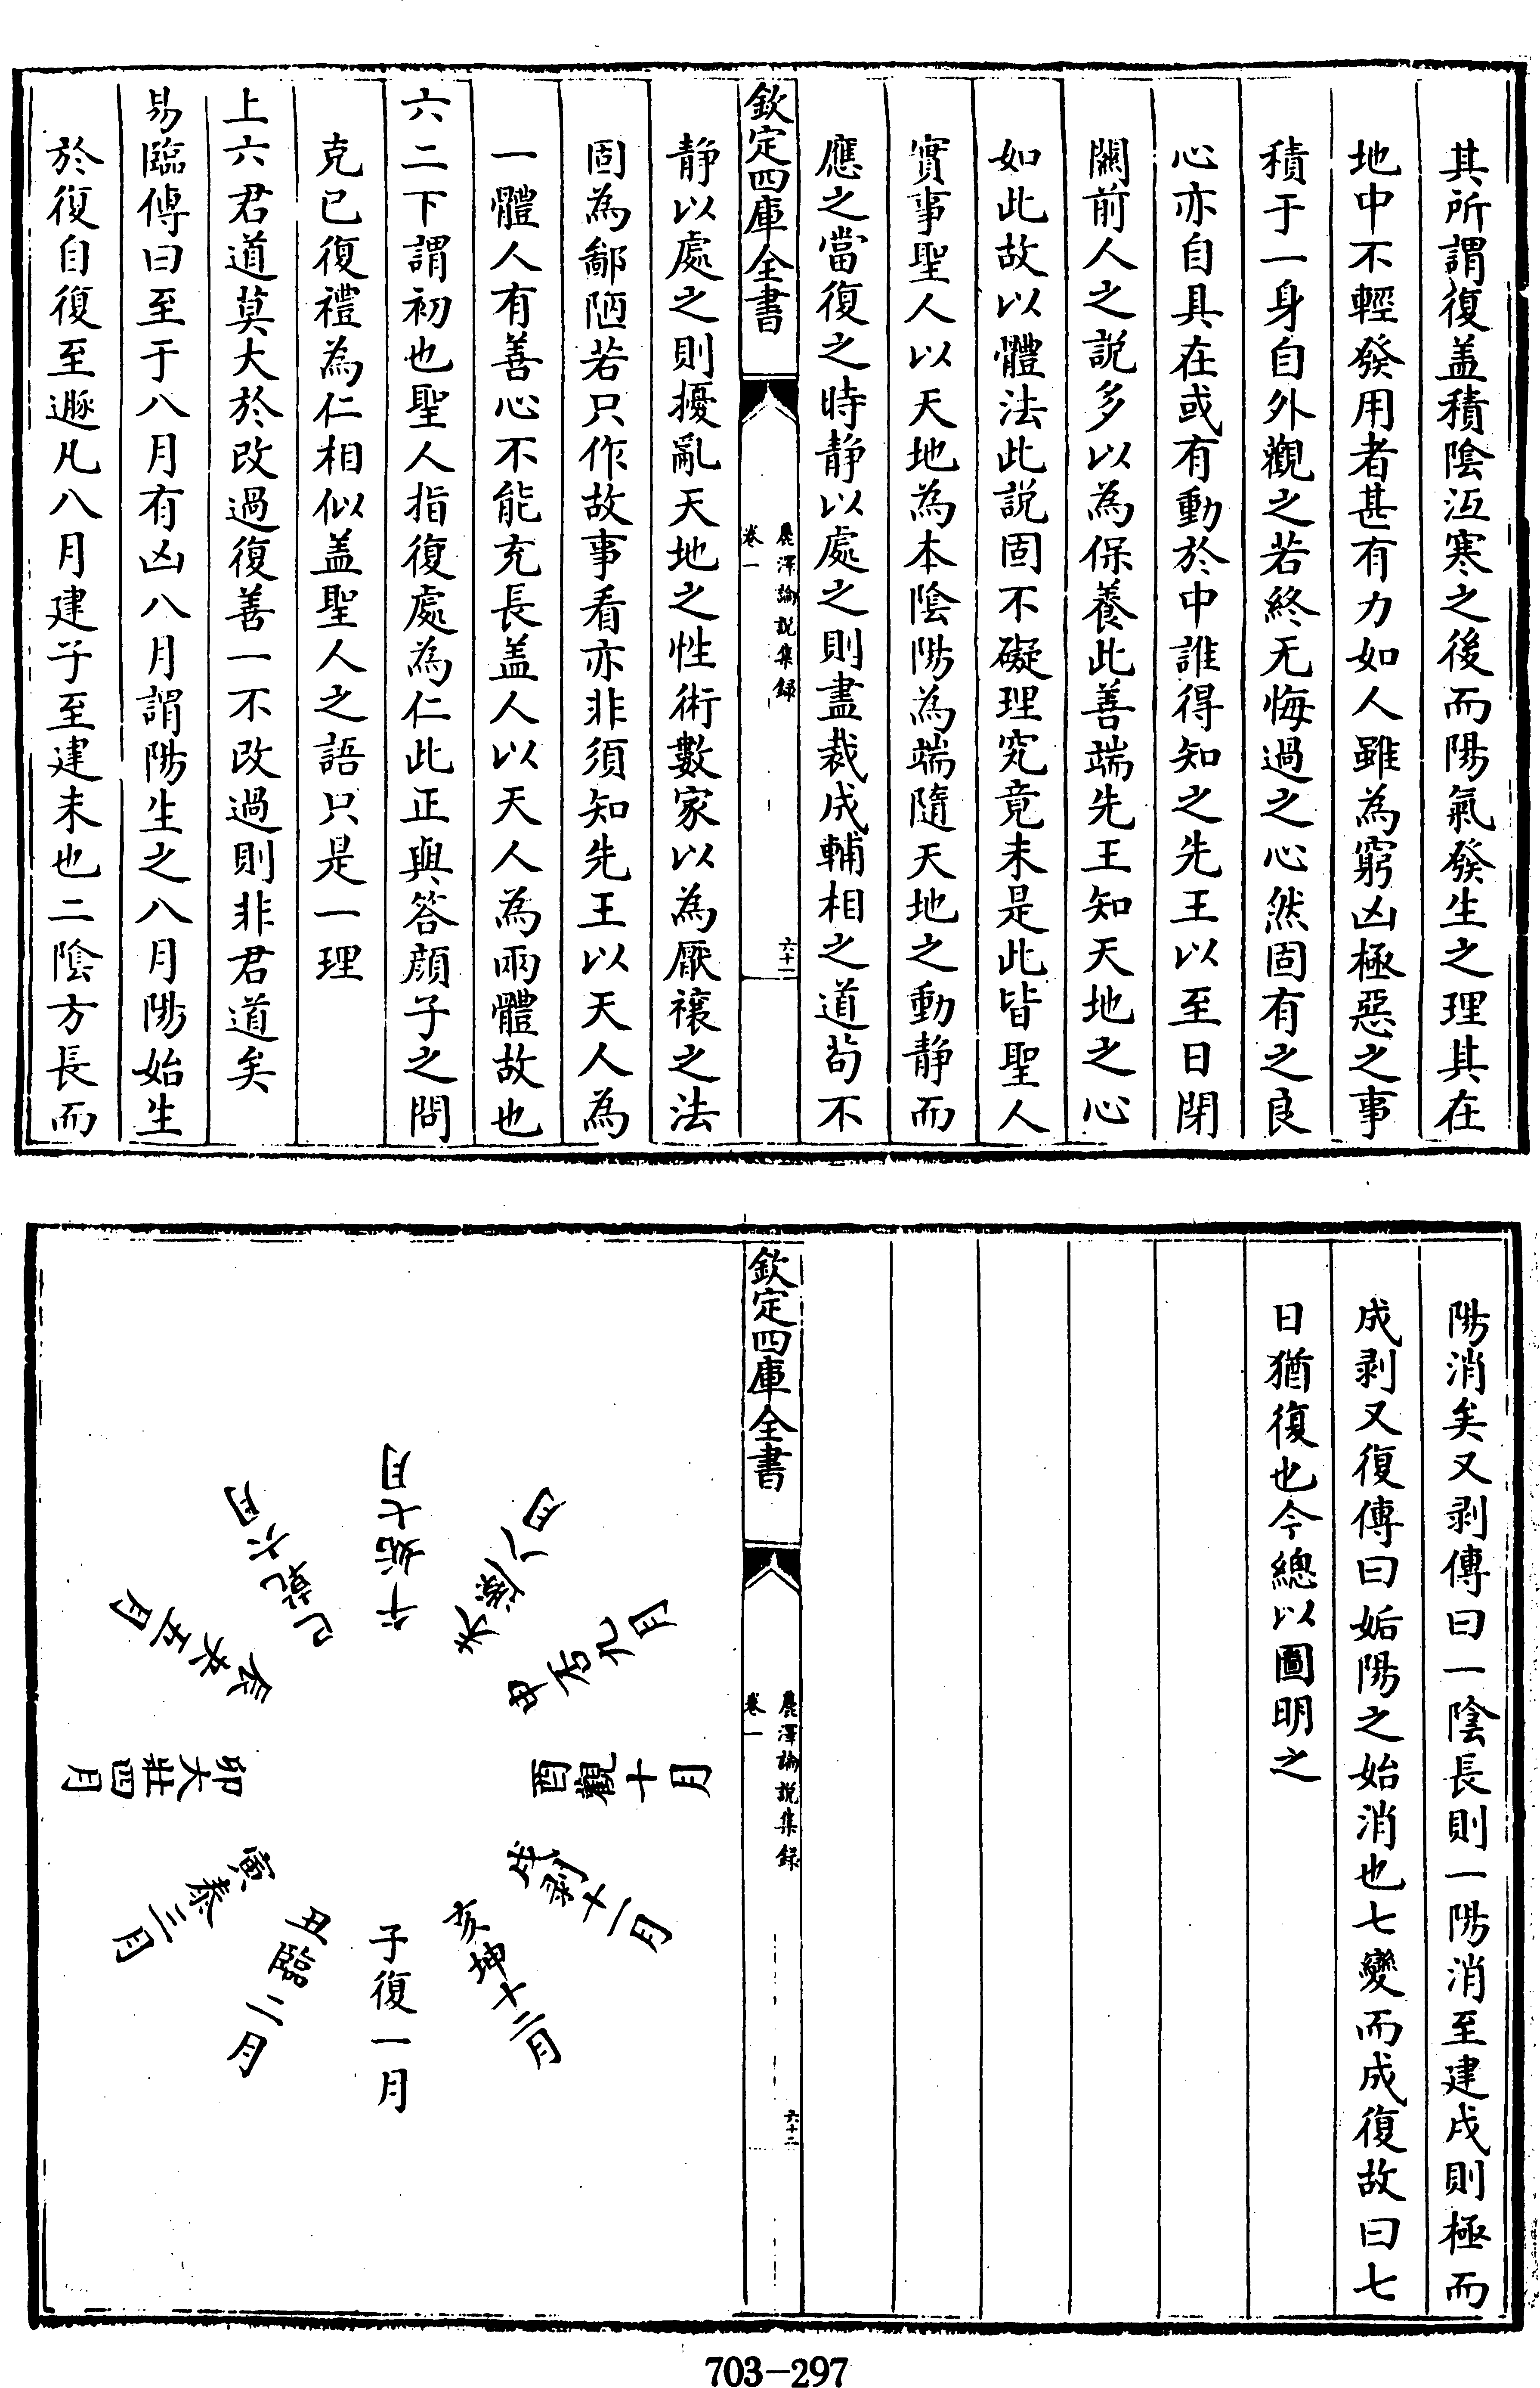 其所謂復盖積陰沍寒之後而陽氣發生之理其在
地中不輕發用者甚有力如人雖為窮凶極惡之事
積于一身自外觀之若終无悔過之心然固有之良
心亦自具在或有動於中誰得知之先王以至日閉
關前人之說多以為保養此善端先王知天地之心
如此故以體法此説固不礙理究竟未是此皆聖人
實事聖人以天地為本陰陽為端隨天地之動静而
應之當復之時静以處之則盡裁成輔相之道苟不
欽定四庫全書
麗澤論説集録
卷一
六十一
静以處之則擾亂天地之性術數家以為厭禳之法
固為鄙陋若只作故事看亦非須知先王以天人為
一體人有善心不能充長盖人以天人為兩體故也
六二下謂初也聖人指復處為仁此正與答顔子之問
克已復禮為仁相似盖聖人之語只是一理
上六君道莫大於改過復善一不改過則非君道矣
易臨傳曰至于八月有凶八月謂陽生之八月陽始生
於復自復至遯凡八月建子至建未也二陰方長而
陽消矣又剥傳曰一陰長則一陽消至建戌則極而
成剥又復傳曰姤陽之始消也七變而成復故曰七
日猶復也今總以圖明之
欽定四庫全書
麗澤論説集録
卷一
六十二
午姤七月
未遯八月
申否九月
酉觀十月
戌剥十一月
亥坤十二月
子復一月
丑臨二月
寅泰三月
卯大壯四月
辰夬五月
巳乾六月
703-297